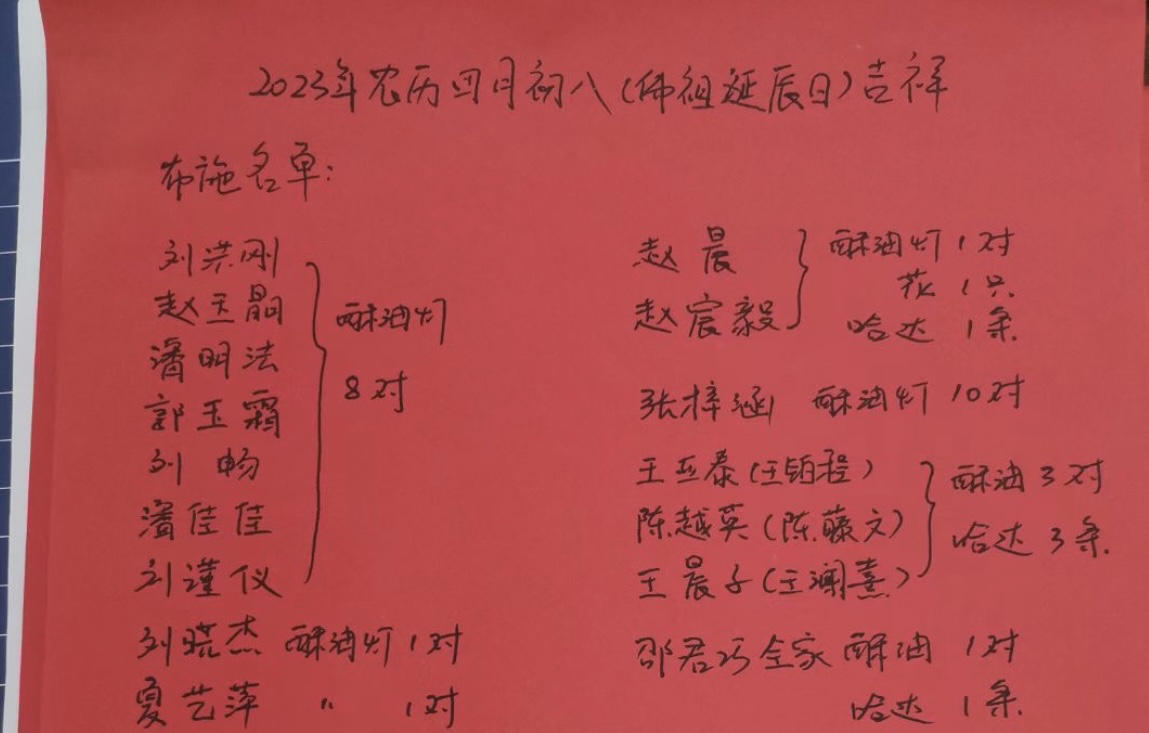 2023年农历四月初八(佛祖诞辰日)吉祥
布施名单:
刘洪刚
赵玉晶
潘明法
郭玉霜
刘 畅
潘佳佳
刘谨仪
酥油灯
8对
刘晓杰 酥油灯 1对
夏艺萍 〃 1对
赵 晨
赵宸毅
酥油灯 1对
花 1只
哈达 1条
张梓涵 酥油灯 10对
王亚泰(王铂程)
陈越英(陈藤文)
王晨子(王澜熹)
酥油 3对
哈达 3条
邵君巧全家 酥油 1对
哈达 1条